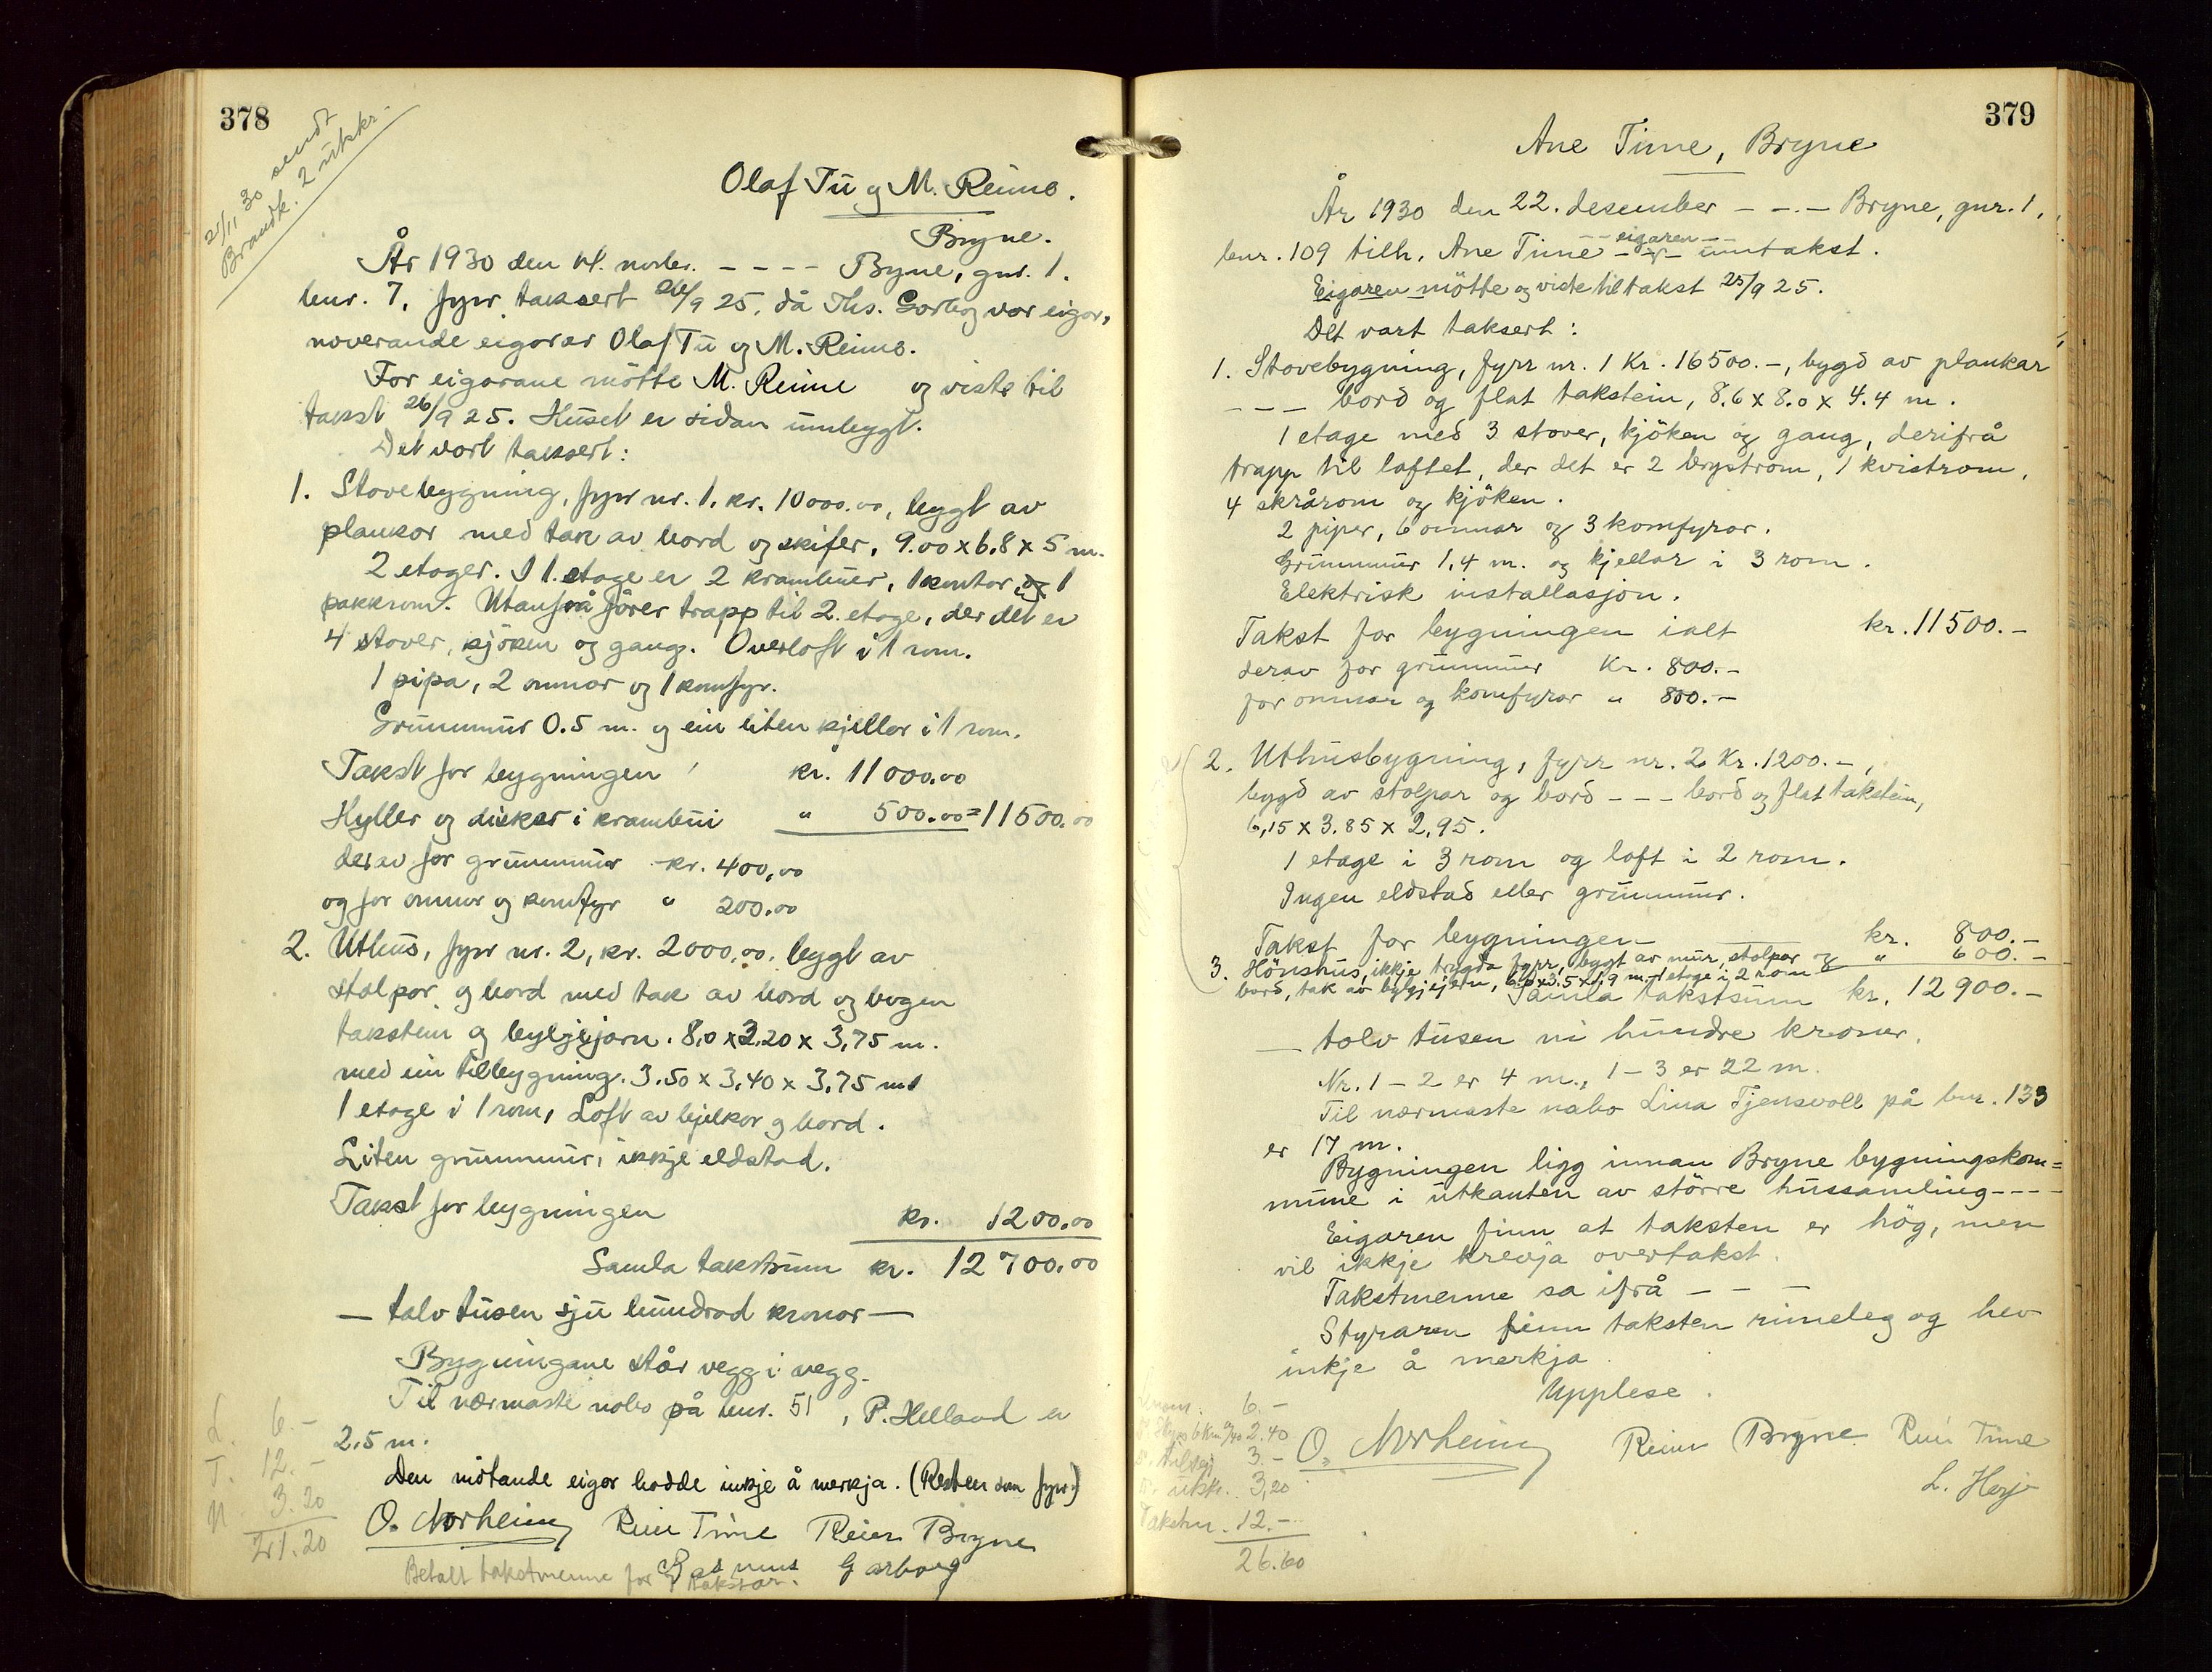 378
21/11 30 sendt
Brandk. 2 utskr.
Olaf Tu og M. Reime.
Bryne.
År 1930 den 14. novbr. - - - - Bryne, gnr. 1.
bnr. 7, fyrr taksert 26/9 25, då Ths. Garborg var eigar,
noverande eigarar Olaf Tu og M. Reime.
For eigarane møtte M. Reime og viste til
takst 26/9 25. Huset er sidan umbygt.
Det vart taksert:
1. Stovebygning, fyrr nr. 1. kr. 10000.00, bygt av
plankar med tak av bord og skifer, 9.00 x 6.8 x 5 m.
2 etager. I 1. etage er 2 krambuer, 1 kontor og 1
pakkrom. Utanfrå fører trapp til 2. etage, der det er
4 stover, kjøken og gang. Overloft i 1 rom.
1 pipa, 2 omnar og 1 komfyr.
Grunnmur 0.5 m. og ein liten kjellar i 1 rom.
Takst for bygningen kr. 11000.00
Hyller og diskar i krambui " 500.00 = 11500.00
derav for grunnmur kr. 400.00
og for omnar og komfyr " 200.00
2. Uthus, fyrr nr. 2, kr. 2000.00, bygt av
stolpar og bord med tak av bord og bogen
takstein og bylgjejarn. 8,0 x 3.20 x 3,75 m.
med ein tilbygning. 3.50 x 3,40 x 3.75 m.
1 etage i 1 rom, Loft av bjelkar og bord.
Liten grunnmur, ikkje eldstad.
Takst for bygningen kr. 1200.00
Samla takstsum kr. 12700.00
— tolv tusen sju hundrad kronor —
Bygningane står vegg i vegg.
Til nærmaste nabo på bnr. 51, P. Helland er
2.5 m.
Den møtande eigar hadde inkje å merkja. (Resten som fyrr)
O. Norheim Reier Time Reier Bryne
Rasmus Garborg
Betalt takstmenne for 7 takstar.
L. 6.-
T. 12.-
U. 3.20
21.20
379
Ane Time, Bryne
År 1930 den 22. desember - - . - Bryne, gnr. 1,
bnr. 109 tilh. Ane Time - - eigaren - - umtakst.
Eigaren møtte og viste til takst 25/9 25.
Det vart taksert:
1. Stovebygning, fyrr nr. 1 Kr. 16500.-, bygd av plankar
- - - bord og flat takstein, 8.6 x 8.0 x 4.4 m.
1 etage med 3 stover, kjøken og gang, derifrå
trapp til loftet, der det er 2 brystrom, 1 kvistrom,
4 skrårom og kjøken.
2 piper, 6 omnar og 3 komfyrar.
Grunnmur 1,4 m. og kjellar i 3 rom.
Elektrisk installasjon.
Takst for bygningen ialt kr. 11500.-
derav for grunnmur Kr. 800.-
for omnar og komfyrar " 800.-
2. Uthusbygning, fyrr nr. 2 Kr. 1200.-,
bygd av stolpar og bord - - - bord og flat takstein,
6,15 x 3.85 x 2,95.
1 etage i 3 rom og loft i 2 rom.
Ingen eldstad eller grunnmur.
Takst for bygningen kr. 800.-
3. Hønshus, ikkje trygda fyrr, bygt av mur, stolpar og " 600.-
bord, tak av bylgjejern, 6.0 x 3.5 x 1,9 m. 1 etage i 2 rom
Samla takstsum kr. 12900.-
— tolv tusen ni hundre kroner.
Nr. 1 - 2 er 4 m., 1 - 3 er 22 m.
Til nærmaste nabo Lina Tjensvoll på bnr. 133
er 17 m.
Bygningen ligg innan Bryne bygningskom=
mune i utkanten av större hussamling - - - -
Eigaren finn at taksten er høg, men
vil ikkje krevja overtakst.
Takstmenne sa ifrå - - -
Styraren finn taksten rimeleg og hev
inkje å merkja.
Upplese.
O. Norheim Reier Bryne Reier Time
6.-
2.40
3.-
utskr. 3,20
Takstm. 12.-
26.60